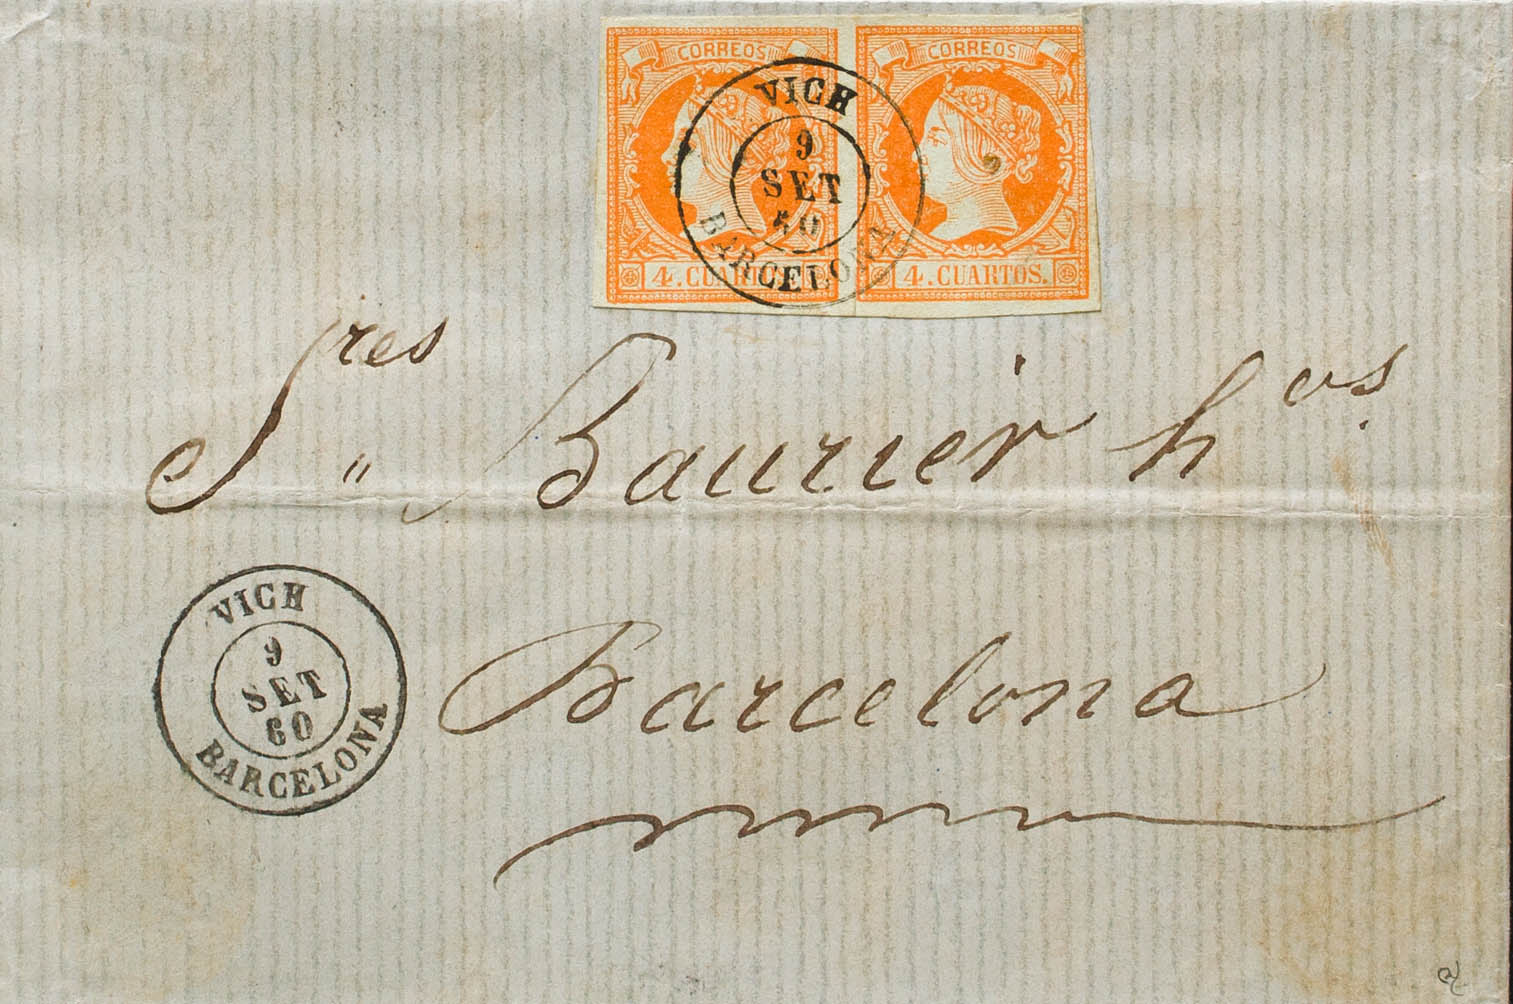 CORREOS CORREOS
VICH
9
SET
60
BARCELONA
4. CUARTOS. 4. CUARTOS.
Sres Baurier hos.
VICH
9
SET
60
BARCELONA
Barcelona